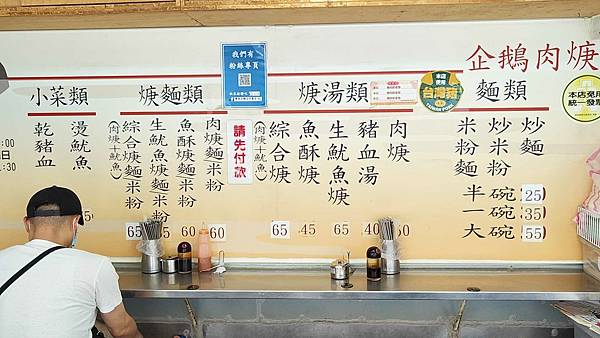 企鵝肉焿
我們有
粉絲專頁
本店使用
台灣豬
本店免用
統一發票
麵類
炒麵
炒米粉
米粉麵
半碗 25
一碗 35
大碗 55
焿湯類
肉焿
豬血湯
生魷魚焿 65
魚酥焿 45
綜合焿 65
(肉焿+魷魚)
請先付款
焿麵類
肉焿麵米粉 60
魚酥焿麵米粉 60
生魷魚焿麵米粉
綜合焿麵米粉 65
(肉焿+魷魚)
小菜類
燙魷魚
乾豬血